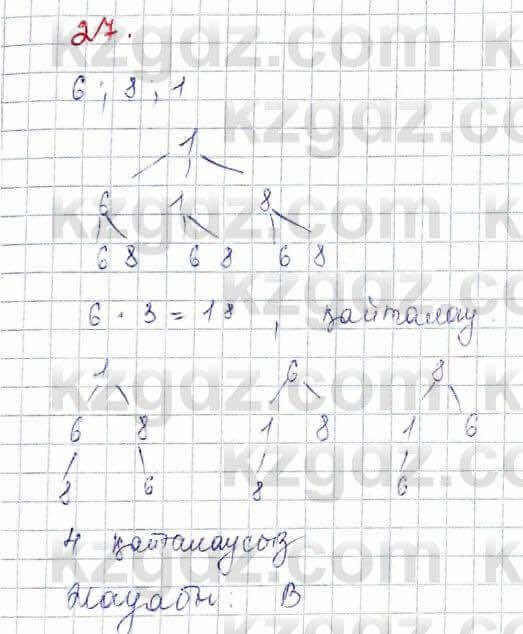 27.
6; 8; 1
1
6 1 8
6 8 6 8 6 8
6 · 3 = 18, қайталау
1 6 8
6 8 1 8 1 6
8 6 8 6
4 қайталаусыз
Жауабы: В
kzgdz.com